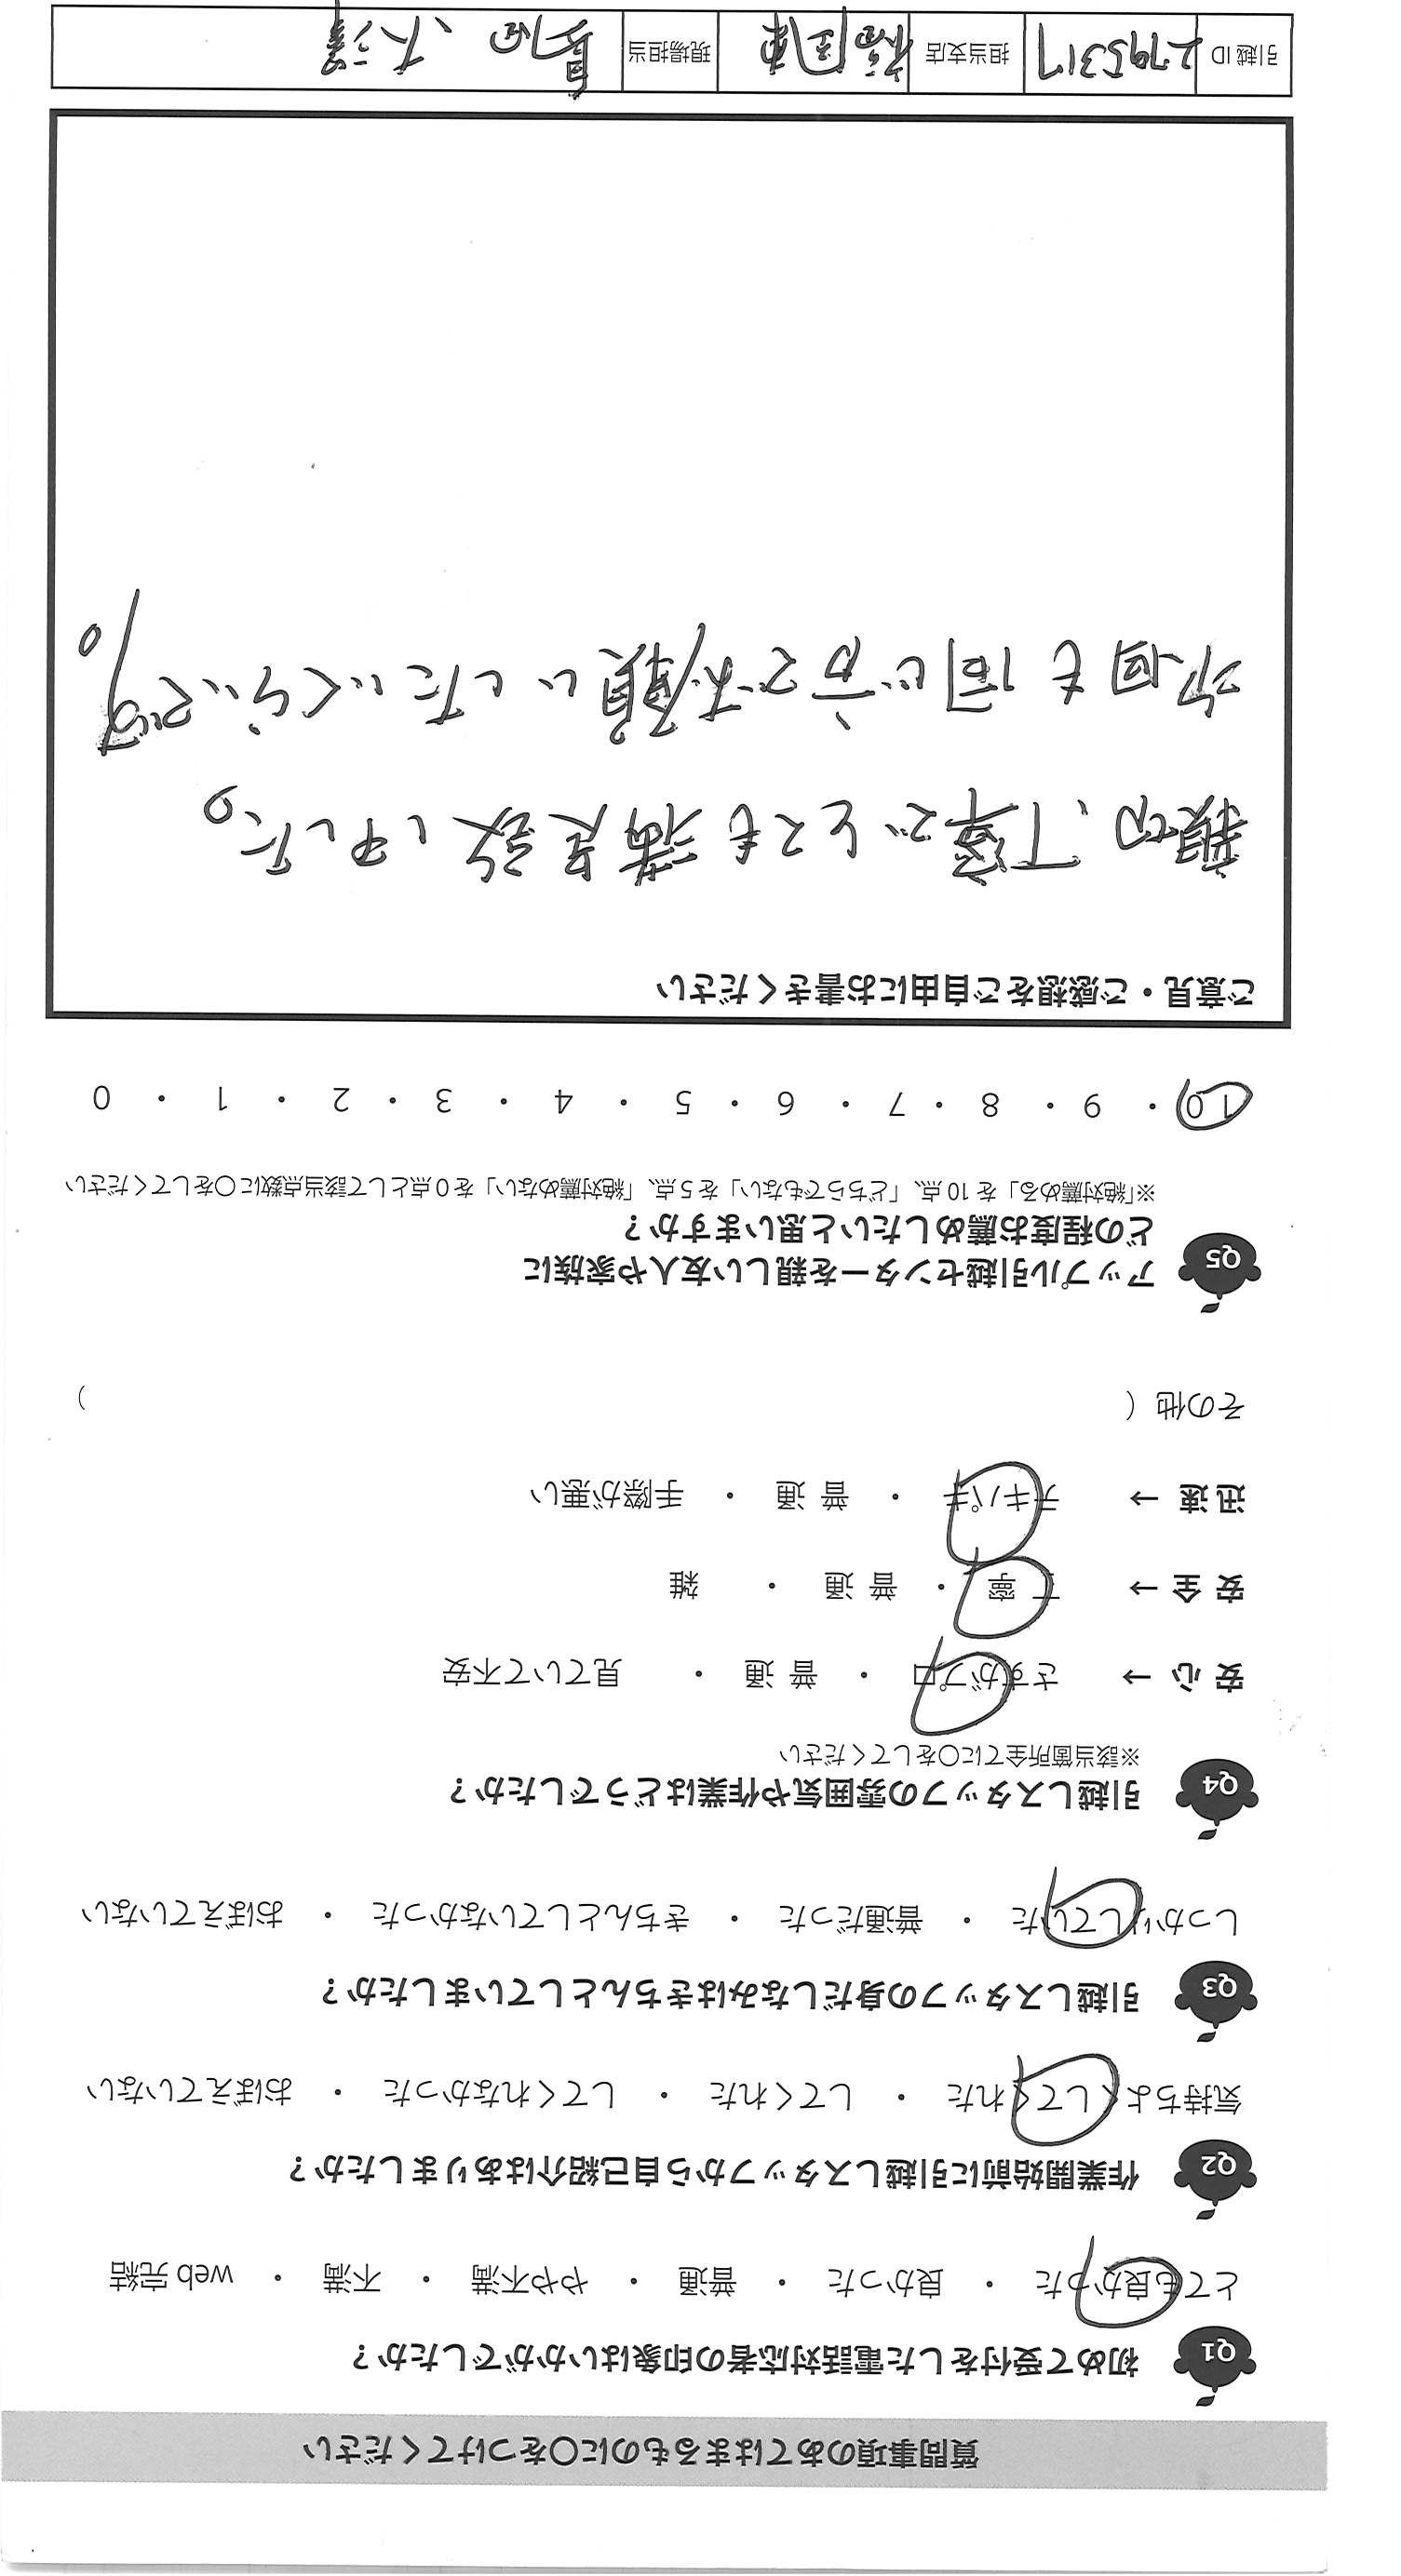 質問事項のあてはまるものに〇をつけてください
Q1 初めて受付をした電話対応者の印象はいかがでしたか？
とても良かった ・ 良かった ・ 普通 ・ やや不満 ・ 不満 ・ web 完結
Q2 作業開始前に引越しスタッフから自己紹介はありましたか？
気持ちよくしてくれた ・ してくれた ・ してくれなかった ・ おぼえていない
Q3 引越しスタッフの身だしなみはきちんとしていましたか？
しっかりしていた ・ 普通だった ・ きちんとしていなかった ・ おぼえていない
Q4 引越しスタッフの雰囲気や作業はどうでしたか？
※該当箇所全てに〇をしてください
安 心 → さすがプロ ・ 普 通 ・ 見ていて不安
安 全 → 丁 寧 ・ 普 通 ・ 雑
迅 速 → テキパキ ・ 普 通 ・ 手際が悪い
その他（ ）
Q5 アップル引越センターを親しい友人や家族に
どの程度お薦めしたいと思いますか？
※「絶対薦める」を 10 点、「どちらでもない」を 5 点、「絶対薦めない」を 0 点として該当点数に〇をしてください
10 ・ 9 ・ 8 ・ 7 ・ 6 ・ 5 ・ 4 ・ 3 ・ 2 ・ 1 ・ 0
ご意見・ご感想をご自由にお書きください
親切、丁寧でとても満足致しました。
次回も同じ方でお願いしたいくらいです。
引越 ID 2795317 担当支店 福岡東 現場担当